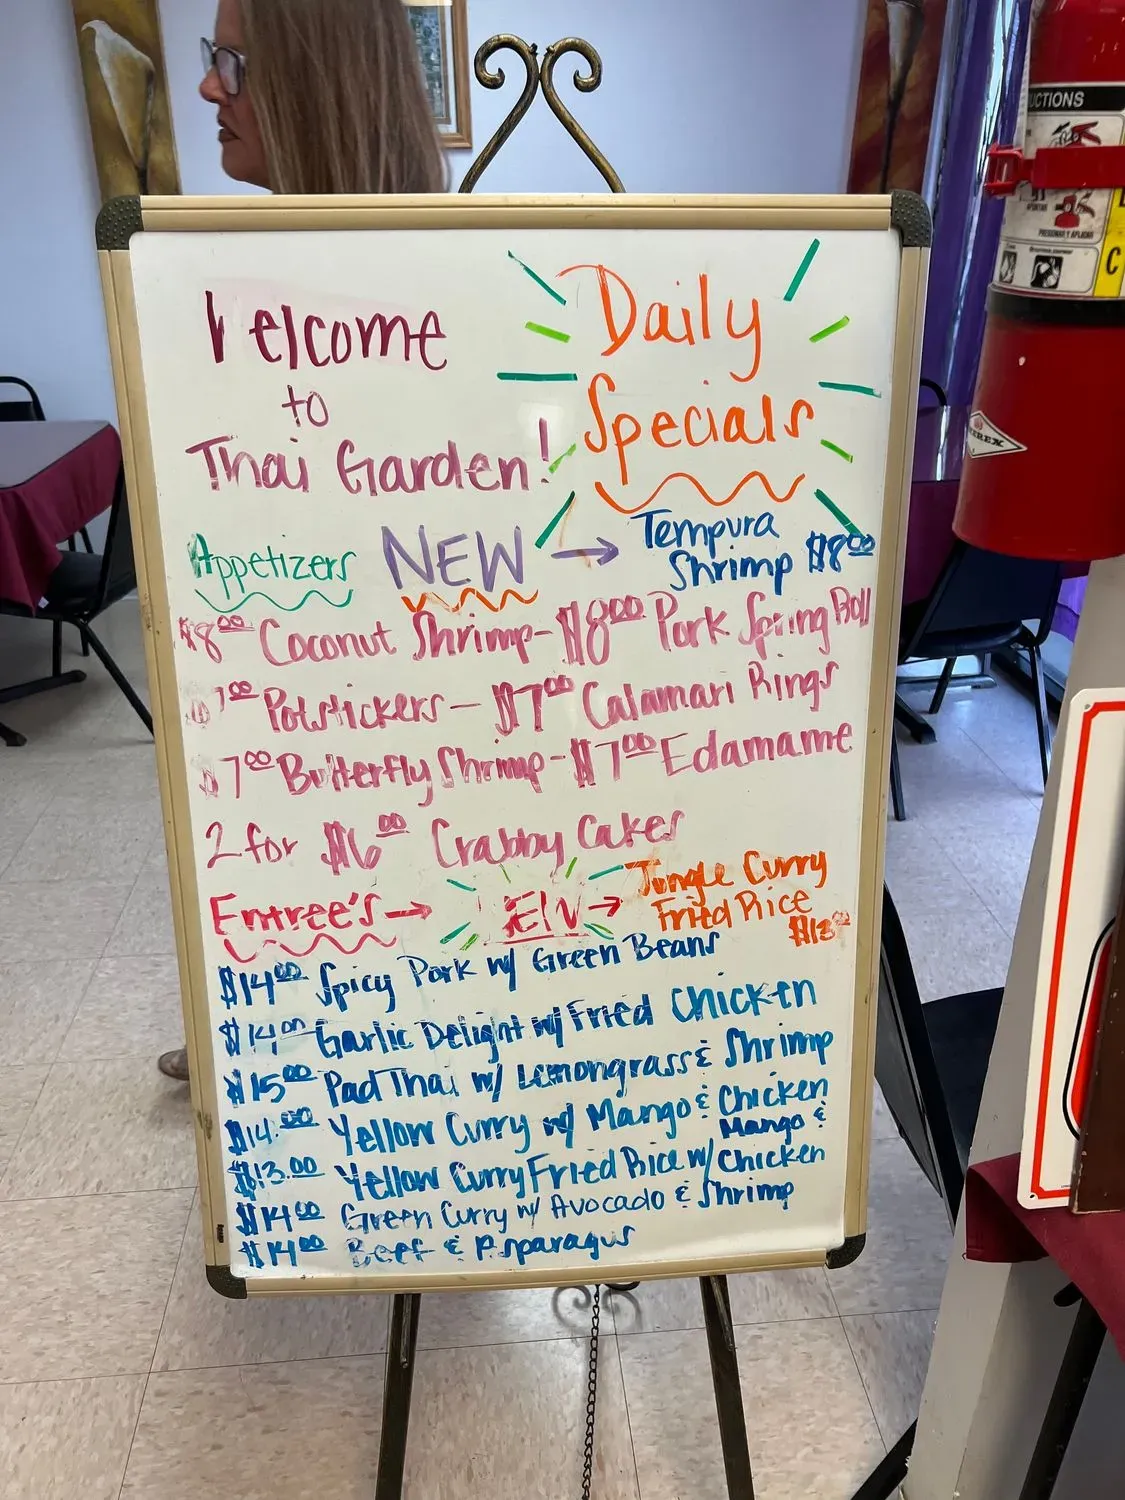 Welcome
to
Thai Garden!
Daily
Specials
Appetizers NEW → Tempura
Shrimp $8.00
$8.00 Coconut Shrimp - $8.00 Pork Spring Roll
7.00 Potstickers - $7.00 Calamari Rings
$7.00 Butterfly Shrimp - $7.00 Edamame
2 for $6.00 Crabby Cakes
Entree's → EW → Jungle Curry
Fried Rice
$13.00
$14.00 Spicy Pork w/ Green Beans
$14.00 Garlic Delight w/ Fried Chicken
$15.00 Pad Thai w/ Lemongrass & Shrimp
$14.00 Yellow Curry w/ Mango & Chicken
Mango &
$13.00 Yellow Curry Fried Rice w/ Chicken
$14.00 Green Curry w/ Avocado & Shrimp
$14.00 Beef & Asparagus
UCTIONS
PRESIONAR Y APLICAR
C